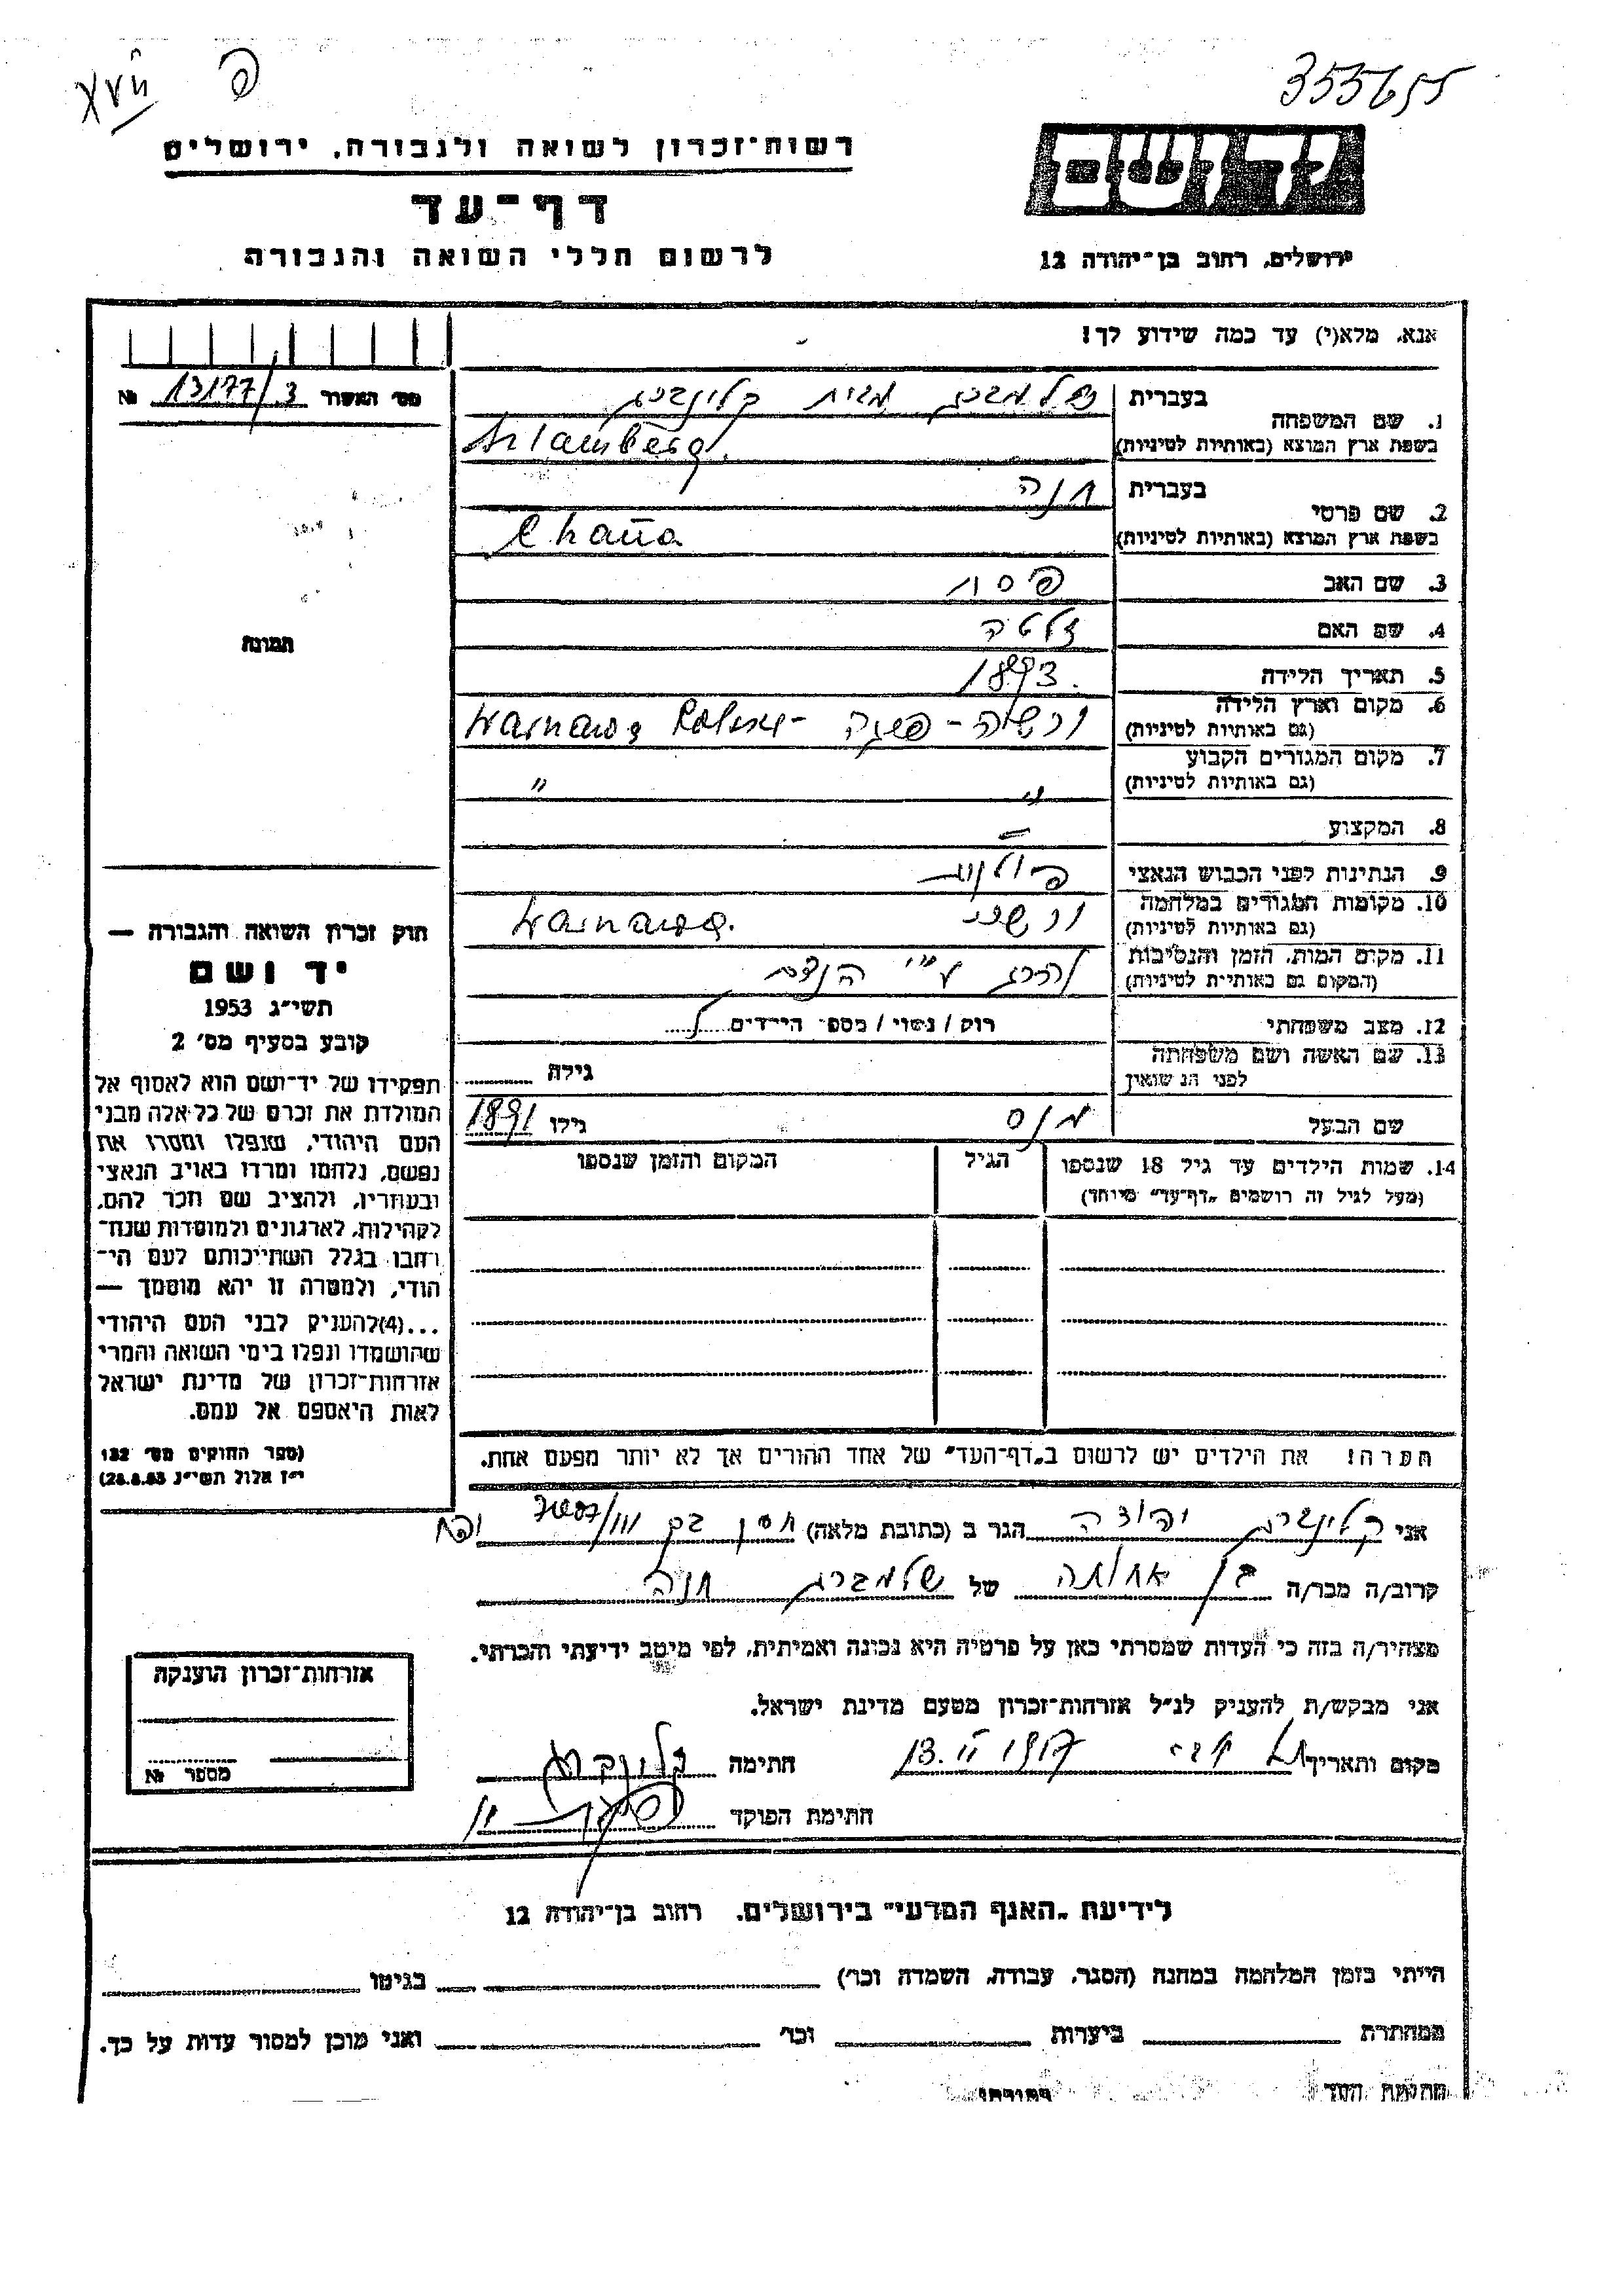 355655
פ
רשות־זכרון לשואה ולגבורה, ירושלים
דף־עד
לרשום חללי השואה והגבורה
יד ושם
ירושלים, רחוב בן־יהודה 12
אנא, מלא(י) עד כמה שידוע לך!
מס׳ האשור 13177/3 №
תמונה
1. שם המשפחה
בעברית שלמברג מבית קלינברג
בשפת ארץ המוצא (באותיות לטיניות) Szlamberg
2. שם פרטי
בעברית חנה
בשפת ארץ המוצא (באותיות לטיניות) Chana
3. שם האב פסח
4. שם האם זלטה
5. תאריך הלידה 1893
6. מקום וארץ הלידה
(גם באותיות לטיניות) ורשה - פולניה
7. מקום המגורים הקבוע
(גם באותיות לטיניות) " "
8. המקצוע –
9. הנתינות לפני הכבוש הנאצי פולנית
10. מקומות המגורים במלחמה
(גם באותיות לטיניות) ורשה
11. מקום המות, הזמן והנסיבות
(המקום גם באותיות לטיניות) נהרגו ע"י הנאצים
12. מצב משפחתי רוק / נשוי / מספר הילדים
13. שם האשה ושם משפחתה
לפני הנשואין גילה
שם הבעל מנס גילו 1891
14. שמות הילדים עד גיל 18 שנספו הגיל המקום והזמן שנספו
(מעל לגיל זה רושמים „דף־עד" מיוחד)
חוק זכרון השואה והגבורה —
יד ושם
תשי״ג 1953
קובע בסעיף מס׳ 2
תפקידו של יד־ושם הוא לאסוף אל
המולדת את זכרם של כל אלה מבני
העם היהודי, שנפלו ומסרו את
נפשם, נלחמו ומרדו באויב הנאצי
ובעוזריו, ולהציב שם וזכר להם,
לקהילות, לארגונים ולמוסדות שנח־
רבו בגלל השתייכותם לעם הי־
הודי, ולמטרה זו יהא מוסמך —
...(4) להעניק לבני העם היהודי
שהושמדו ונפלו בימי השואה והמרי
אזרחות־זכרון של מדינת ישראל
לאות היאספם אל עמם.
(ספר החוקים מס׳ 132
י״ז אלול תשי״ג 28.8.53)
הערה! את הילדים יש לרשום ב„דף־העד" של אחד ההורים אך לא יותר מפעם אחת.
אני קלינברג יהודה הגר ב (כתובת מלאה)
קרוב/ה מכר/ה בן אחותה של שלמברג חנה
מצהיר/ה בזה כי העדות שמסרתי כאן על פרטיה היא נכונה ואמיתית, לפי מיטב ידיעתי והכרתי.
אני מבקש/ת להעניק לנ״ל אזרחות־זכרון מטעם מדינת ישראל.
מקום ותאריך חתימה קלינברג
חתימת הפוקד
אזרחות־זכרון הוענקה
מספר №
לידיעת „האגף המדעי" בירושלים, רחוב בן־יהודה 12
הייתי בזמן המלחמה במחנה (הסגר, עבודה, השמדה וכר׳) בגיטו
במחתרת ביערות וכר׳ ואני מוכן למסור עדות על כך.
חתימת העד